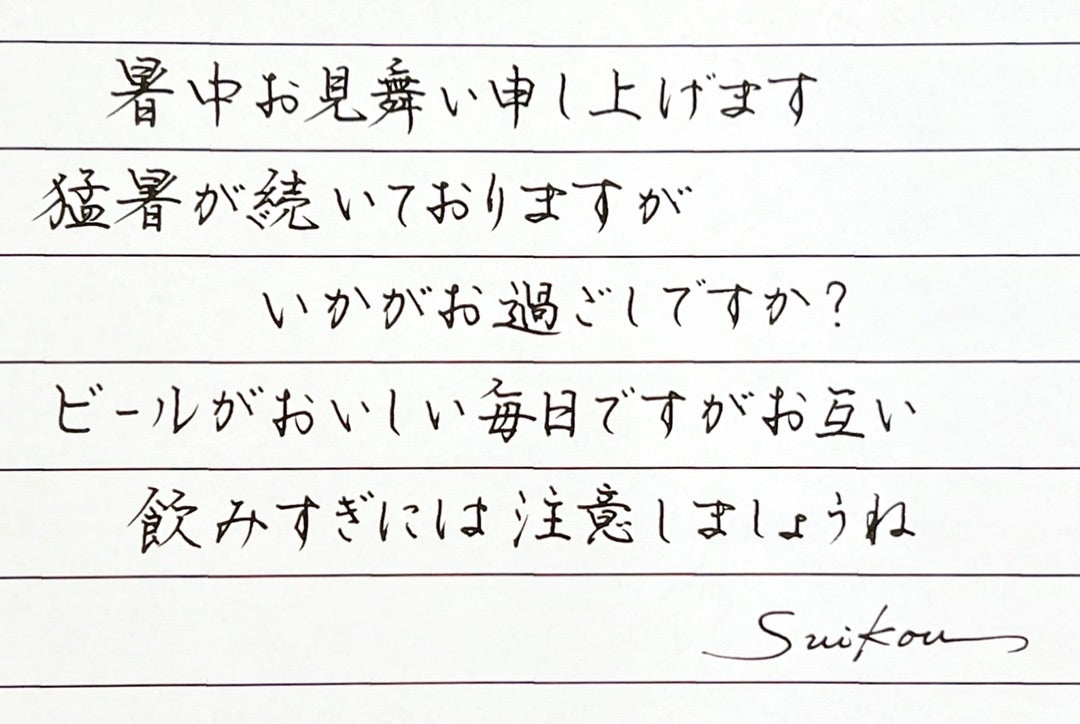 暑中お見舞い申し上げます
猛暑が続いておりますが
いかがお過ごしですか？
ビールがおいしい毎日ですがお互い
飲みすぎには注意しましょうね
Suikou